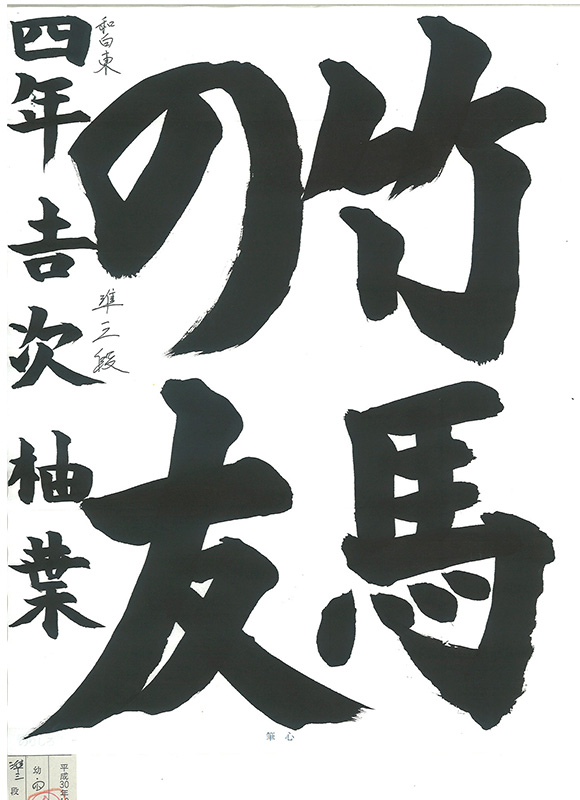 竹馬
の友
和白東
四年 吉次 柚葉
準三段
心筆
平成30年
幼・小
準三段